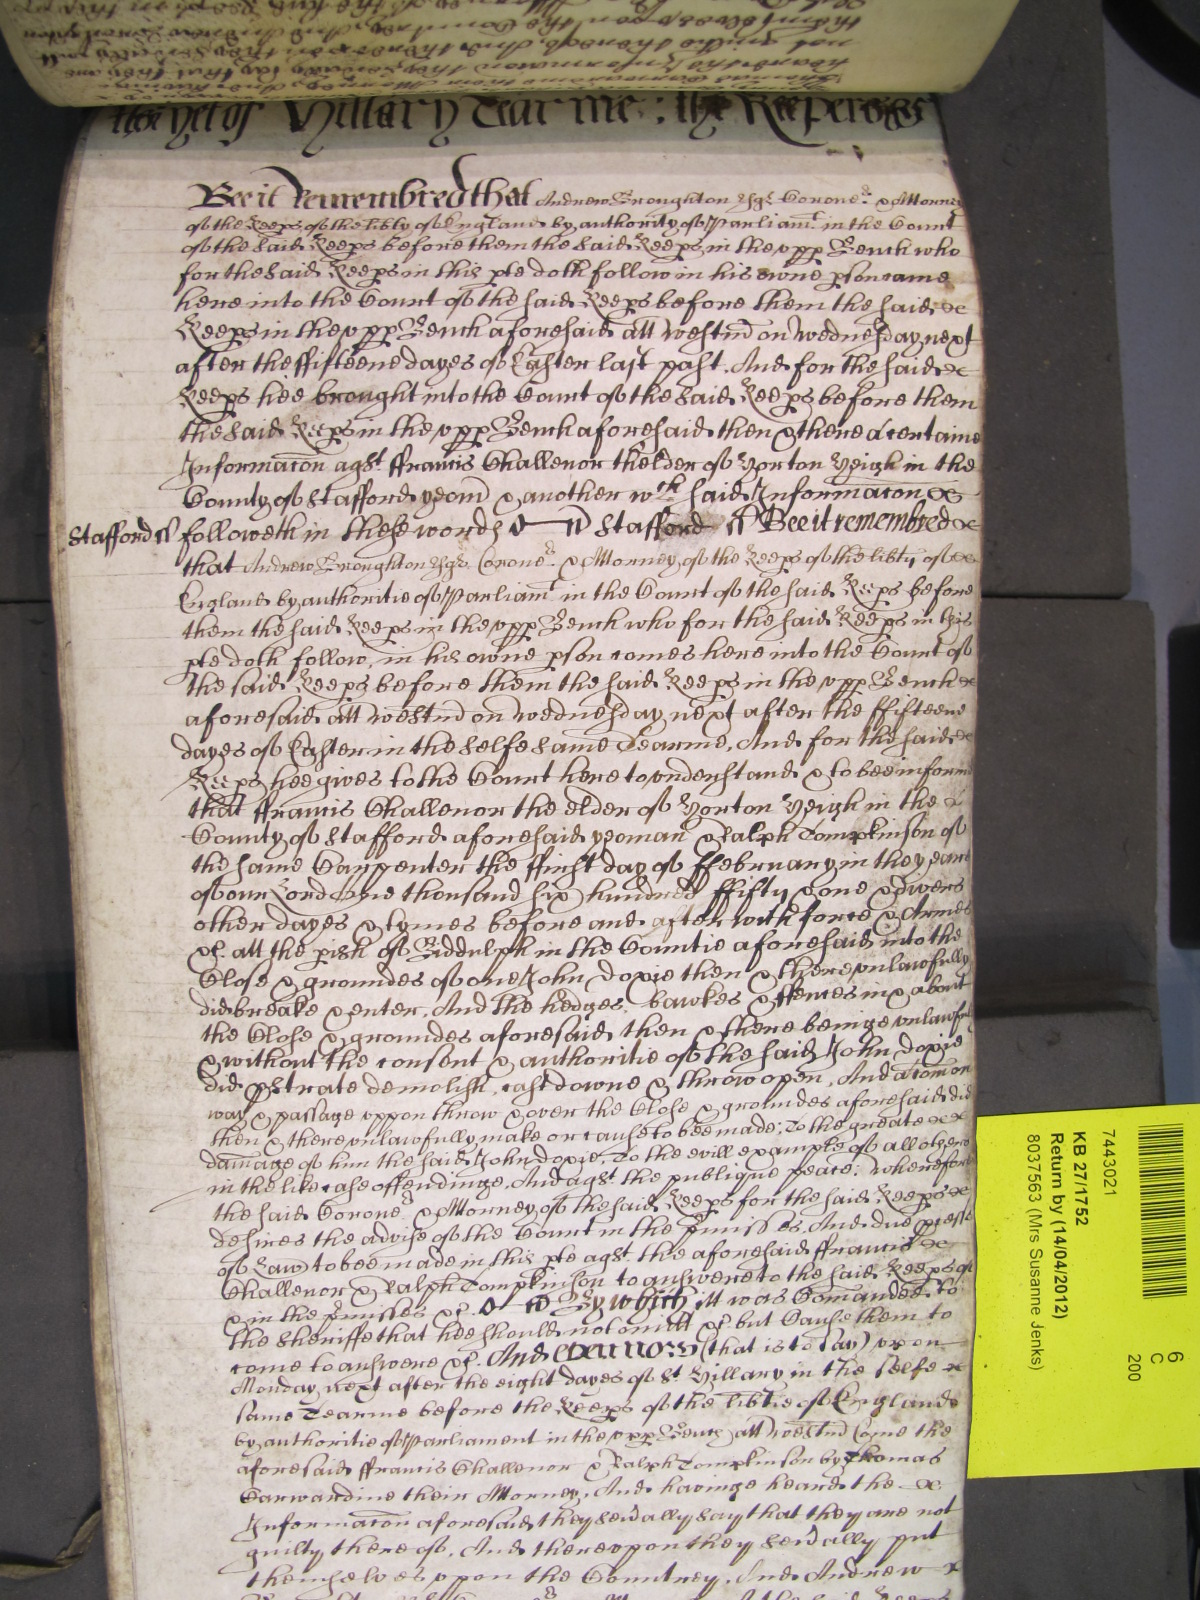 as yet of Hillary Tearme: the Keepers &c
Bee it remembred that Andrew Broughton Esqr Coronr & Attorney
of the Keeps of the libty of England by authority of Parliamt in the Court
of the said Keeps before them the said Keeps in the upp Bench who
for the said Keeps in this pte doth follow in his owne pson came
here into the Court of the said Keeps before them the said &c
Keeps in the upp Bench aforesaid att Westm on Wednesday next
after the fifteene dayes of Easter last past. And for the said &c
Keeps hee brought into the Court of the said Keeps before them
the said Keeps in the upp Bench aforesaid then & there a certaine
Informacon agst ffrancis Challenor thelder of Norton in the
County of Stafford yeom & another wch said Informacon &c
Stafford ss followeth in these words Stafford ss Bee it remembred &c
that Andrew Broughton Esqr Coronr & Attorney of the Keeps of the libty of &c
England by authoritie of Parliamt in the Court of the said Keeps before
them the said Keeps in the upp Bench who for the said Keeps in this
pte doth follow, in his owne pson comes here into the Court of
the said Keeps before them the said Keeps in the upp Bench &c
aforesaid att Westm on Wednesday next after the ffifteene
dayes of Easter in the selfe same Tearme. And for the said &c
Keeps hee gives to the Court here to understand & to bee informed
that ffrancis Challenor the elder of Norton in the
County of Stafford aforesaid yeoman & Ralph Tompkinson of
the same Carppenter the ffirst day of ffebruary in the yeare
of our Lord one thousand six hundred ffifty & one & divers
other dayes & tymes before and after with force & Armes
&c. att the pish of Biddulph in the Countie aforesaid into the
Close & groundes of one John doxie then & there unlawfully
did breake & enter. And the hedges, bawkes & ffences in & about
the Close & groundes aforesaid then & there beinge unlawfully
& without the consent & authoritie of the said John doxie
did pstrate demolish, cast downe & throw open, And a comon
way & passage uppon throw & over the Close & groundes aforesaid did
then & there unlawfully make or cause to bee made: To the greate &c
damage of him the said John doxie. To the evill example of all others
in the like case offendinge. And agst the publique peace: Wherefore
the said Coronr & Attorney of the said Keeps for the said Keeps &c
desires the advise of the Court in the pmisses. And due pcesse
of Law to bee made in this pte agst the aforesaid ffrancis &c
Challenor & Ralph Tompkinson to answere to the said Keeps of
& in the pmisses &c. By which itt was Comanded to
the Sheriffe that hee should not omitt &c. but Cause them to
come to answere &c. And now (that is to say) upon
Monday next after the eight dayes of St Hillary in the selfe &c
same Tearme before the Keeps of the libtie of England
by authoritie of Parliament in the upp Bench att Westm Come the
aforesaid ffrancis Challenor & Ralph Tompkinson by Thomas
Carwardine their Attorney. And havinge heard the &c
Informacon aforesaid they seually say that they are not
guilty there of. And thereupon they seually put
themselves upon the Countrey. And Andrew &c
6
C
200
7443021
KB 27/1752
Return by (14/04/2012)
8037563 (Mrs Susanne Jenks)